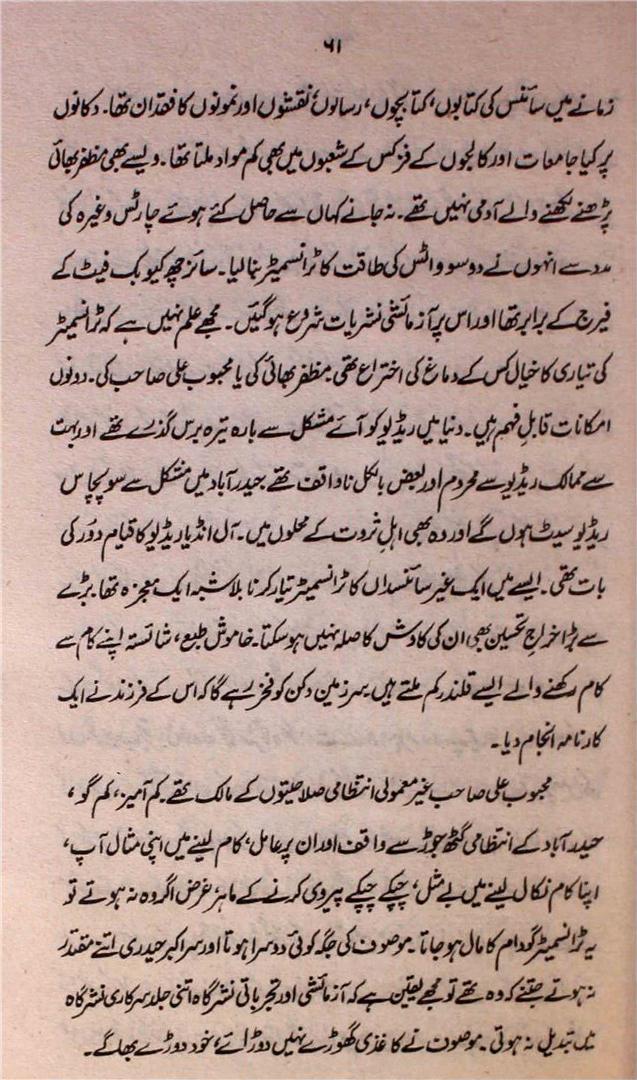 ۶۱
زمانے میں سائنس کی کتابوں، کتابچوں، رسالوں، نقشوں اور نمونوں کا فقدان تھا۔ دکانوں
پر کیا جامعات اور کالجوں کے فزکس کے شعبوں میں بھی کم مواد ملتا تھا۔ ویسے بھی مظفر بھائی
پڑھنے لکھنے والے آدمی نہیں تھے۔ نہ جانے کہاں سے حاصل کئے ہوئے چارٹس وغیرہ کی
مدد سے انہوں نے دو سو واٹس کی طاقت کا ٹرانسمیٹر بنا لیا۔ سائز چھ کیوبک فیٹ کے
فیرج کے برابر تھا اور اس پر آزمائشی نشریات شروع ہو گئیں۔ مجھے علم نہیں ہے کہ ٹرانسمیٹر
کی تیاری کا خیال کس کے دماغ کی اختراع تھی۔ مظفر بھائی کی یا محبوب علی صاحب کی۔ دونوں
امکانات قابلِ فہم ہیں۔ دنیا میں ریڈیو کو آئے مشکل سے بارہ تیرہ برس گذرے تھے اور بہت
سے ممالک ریڈیو سے محروم اور بعض بالکل ناواقف تھے۔ حیدرآباد میں مشکل سے سو پچاس
ریڈیو سیٹ ہوں گے اور وہ بھی اہلِ ثروت کے محلوں میں۔ آل انڈیا ریڈیو کا قیام دور کی
بات تھی۔ ایسے میں ایک غیر سائنسداں کا ٹرانسمیٹر تیار کرنا بلاشبہ ایک معجزہ تھا۔ بڑے
سے بڑا خراجِ تحسین بھی ان کی کاوش کا صلہ نہیں ہو سکتا۔ خاموش طبع، شائستہ اپنے کام سے
کام رکھنے والے ایسے قلندر کم ملتے ہیں۔ سرزمین دکن کو فخر رہے گا کہ اس کے فرزند نے ایک
کارنامہ انجام دیا۔
محبوب علی صاحب غیر معمولی انتظامی صلاحیتوں کے مالک تھے۔ کم آمیز، کم گو،
حیدرآباد کے انتظامی گٹھ جوڑ سے واقف اور ان پر عامل، کام لینے میں اپنی مثال آپ،
اپنا کام نکال لینے میں بے مثل، چپکے چپکے پیروی کرنے کے ماہر، غرض اگر وہ نہ ہوتے تو
یہ ٹرانسمیٹر گودام کا مال ہو جاتا۔ موصوف کی جگہ کوئی دوسرا ہوتا اور سر اکبر حیدری اتنے مقتدر
نہ ہوتے جتنے کہ وہ تھے تو مجھے یقین ہے کہ آزمائشی اور تجرباتی نشرگاہ اتنی جلد سرکاری نشرگاہ
میں تبدیل نہ ہوتی۔ موصوف نے کاغذی گھوڑے نہیں دوڑائے، خود دوڑے بھاگے۔